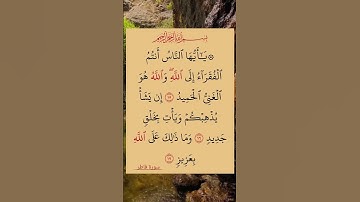 بسم الله الرحمن الرحيم
۞ يَٰٓأَيُّهَا ٱلنَّاسُ أَنتُمُ
ٱلْفُقَرَآءُ إِلَى ٱللَّهِۖ وَٱللَّهُ هُوَ
ٱلْغَنِىُّ ٱلْحَمِيدُ ١٥ إِن يَشَأْ
يُذْهِبْكُمْ وَيَأْتِ بِخَلْقٍ
جَدِيدٍ ١٦ وَمَا ذَٰلِكَ عَلَى ٱللَّهِ
بِعَزِيزٍ ١٧
سورة فاطر